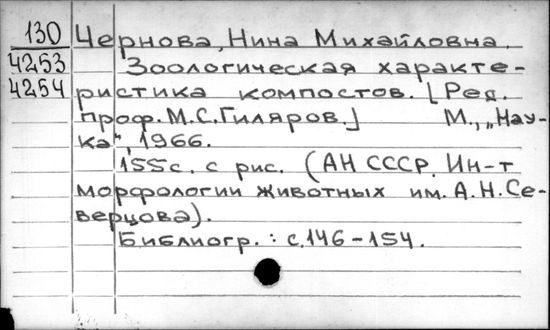 130 Чернова, Нина Михайловна.
4253 Зоологическая характе-
4254 ристика компостов. [Ред.
проф. М.С. Гиляров.] М., „Нау-
ка", 1966.
155с. с рис. (АН СССР. Ин-т
морфологии животных им. А.Н. Се-
верцова).
Библиогр.: с.146-154.